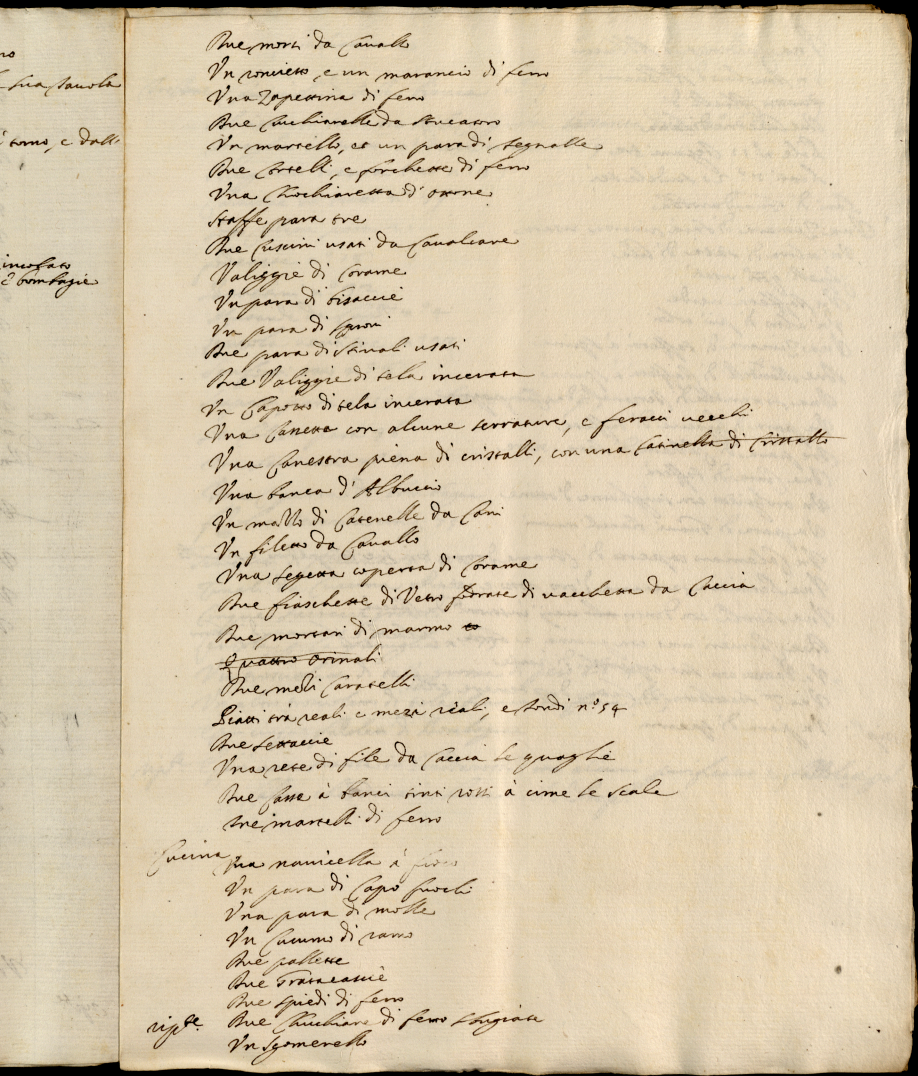 no
sua tavola
torno, e dall'
incofato
e bombagie
Due morsi da Cavallo
Un roncietto, e un marancio di ferro
Una Zapettina di ferro
Due Cuchiarelle da Stucatoro
Un martello, et un para di tegnalle
Due Cortelli, e forchette di ferro
Una Chochiaretta d' ottone
Staffe para tre
Due Cuscini usati da Cavalcare
Valiggie di Corame
Un para di bisaccie
Un para di sproni
Due para di Stivali usati
Due Valiggie di tela incerata
Un Capotto di tela incerata
Una Cassetta con alcune serrature, e feracci vecchi
Una Canestra piena di cristalli, con una Catinella di Cristallo
Una banca d' Albuccio
Un mazzo di Catenelle da Cani
Un filetto da Cavallo
Una segetta coperta di Corame
Due fiaschette di Vetro foderate di vacchetta da Caccia
Due mortari di marmo
Quattro Orinali
Due mezi Caratelli
Piatti trà reali e mezi reali, e tondi n.º 54
Due settaccie
Una rete di file da Caccia le quaglie
Due Casse à banci tinti rossi à cime le scale
Tre martelli di ferro
Cucina Una navicella à foco
Un para di Capo fuochi
Una para di molle
Un Cucumo di ramo
Due pallette
Due Grattacascie
Due spiedi di ferro
Due Chuchiare di ferro sbugiate
Un Sgomerello